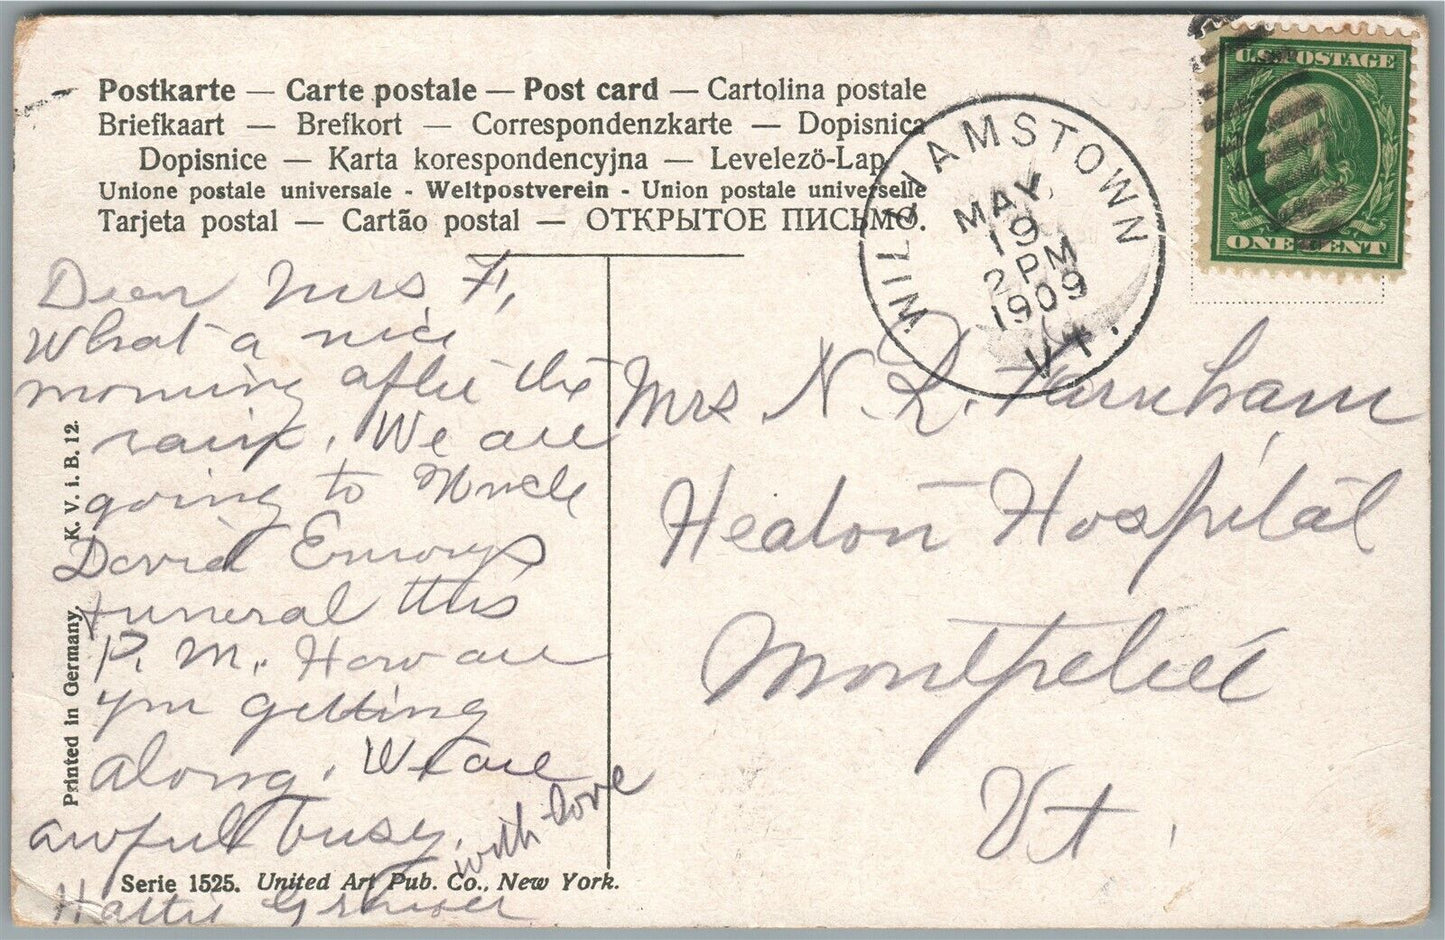 Postkarte — Carte postale — Post card — Cartolina postale
Briefkaart — Brefkort — Correspondenzkarte — Dopisnica
Dopisnice — Karta korespondencyjna — Levelezö-Lap.
Unione postale universale - Weltpostverein - Union postale universelle
Tarjeta postal — Cartão postal — ОТКРЫТОЕ ПИСЬМО.
U.S. POSTAGE
ONE CENT
WILLIAMSTOWN
MAY
10
2 PM
1909
VT.
Dear Mrs F,
What a nice
morning after the
rain. We are
going to Uncle
David Emorys
funeral this
P. M. How are
you getting
along. We are
awful busy.
with love
Hattie
Mrs N. R. Farnham
Heaton Hospital
Montpelier
Vt.
Printed in Germany. K. V. i. B. 12.
Serie 1525. United Art Pub. Co., New York.